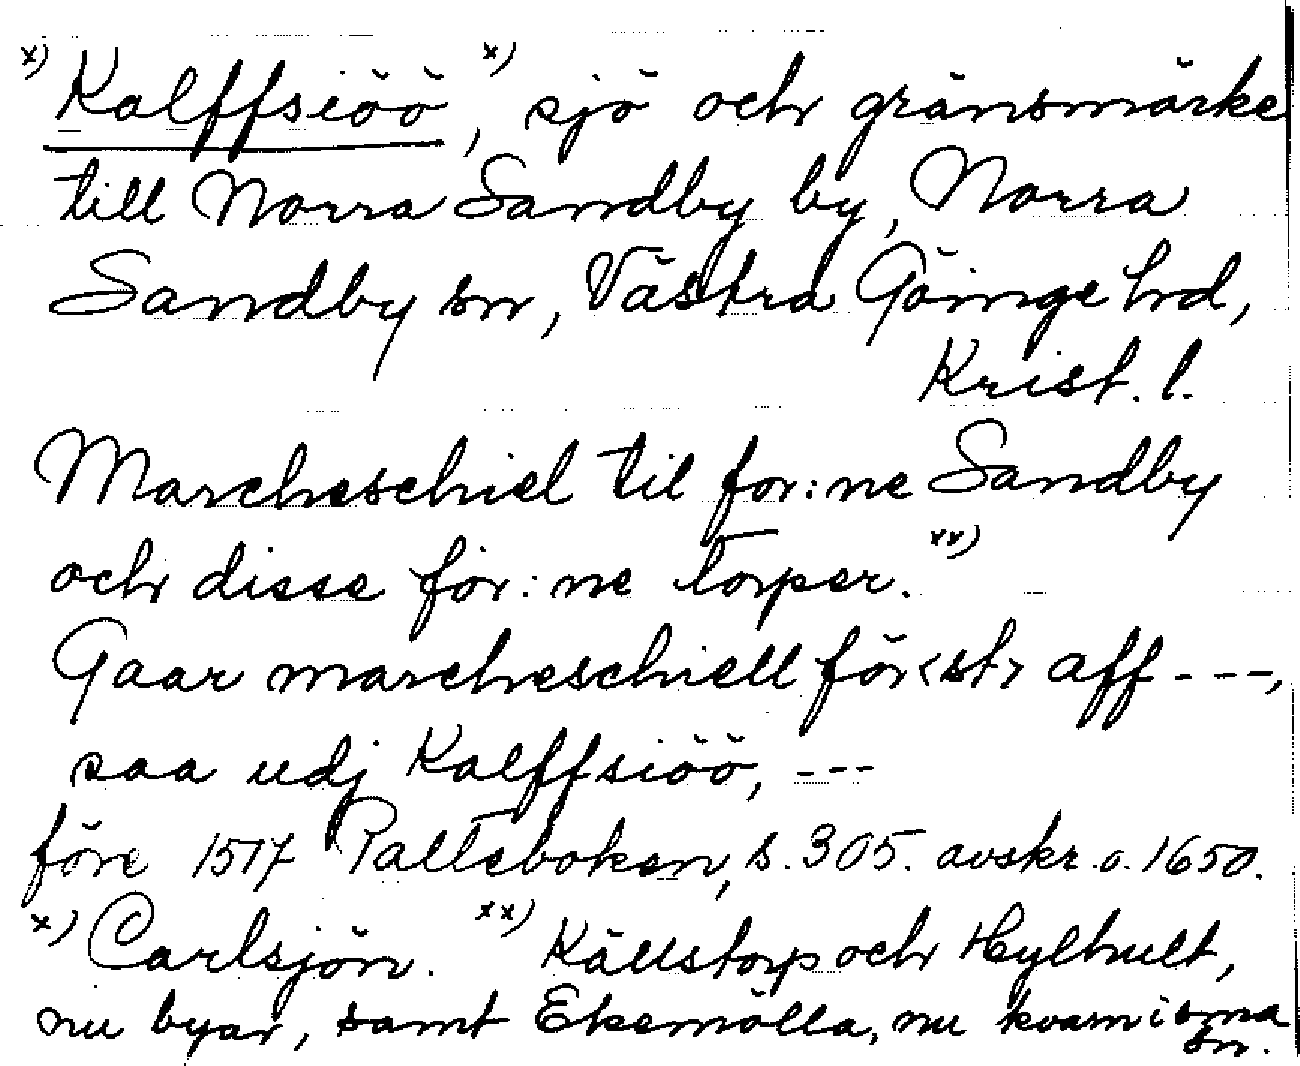 x) Kalffsiöö, x) sjö och gränsmärke
till Norra Sandby by, Norra
Sandby sn, Västra Göinge hd,
Krist. l.
Marcheschiel til for:ne Sandby
och disse for:ne torper. xx)
Gaar marcheschiell för<st> aff ---,
saa udj Kalffsiöö, ---
före 1517 Palteboken, s. 305. avskr. o. 1650.
x) Carlsjön. xx) Källstorp och Hylhult,
nu byar, samt Ekemölla, nu kvarn i sma
sn.